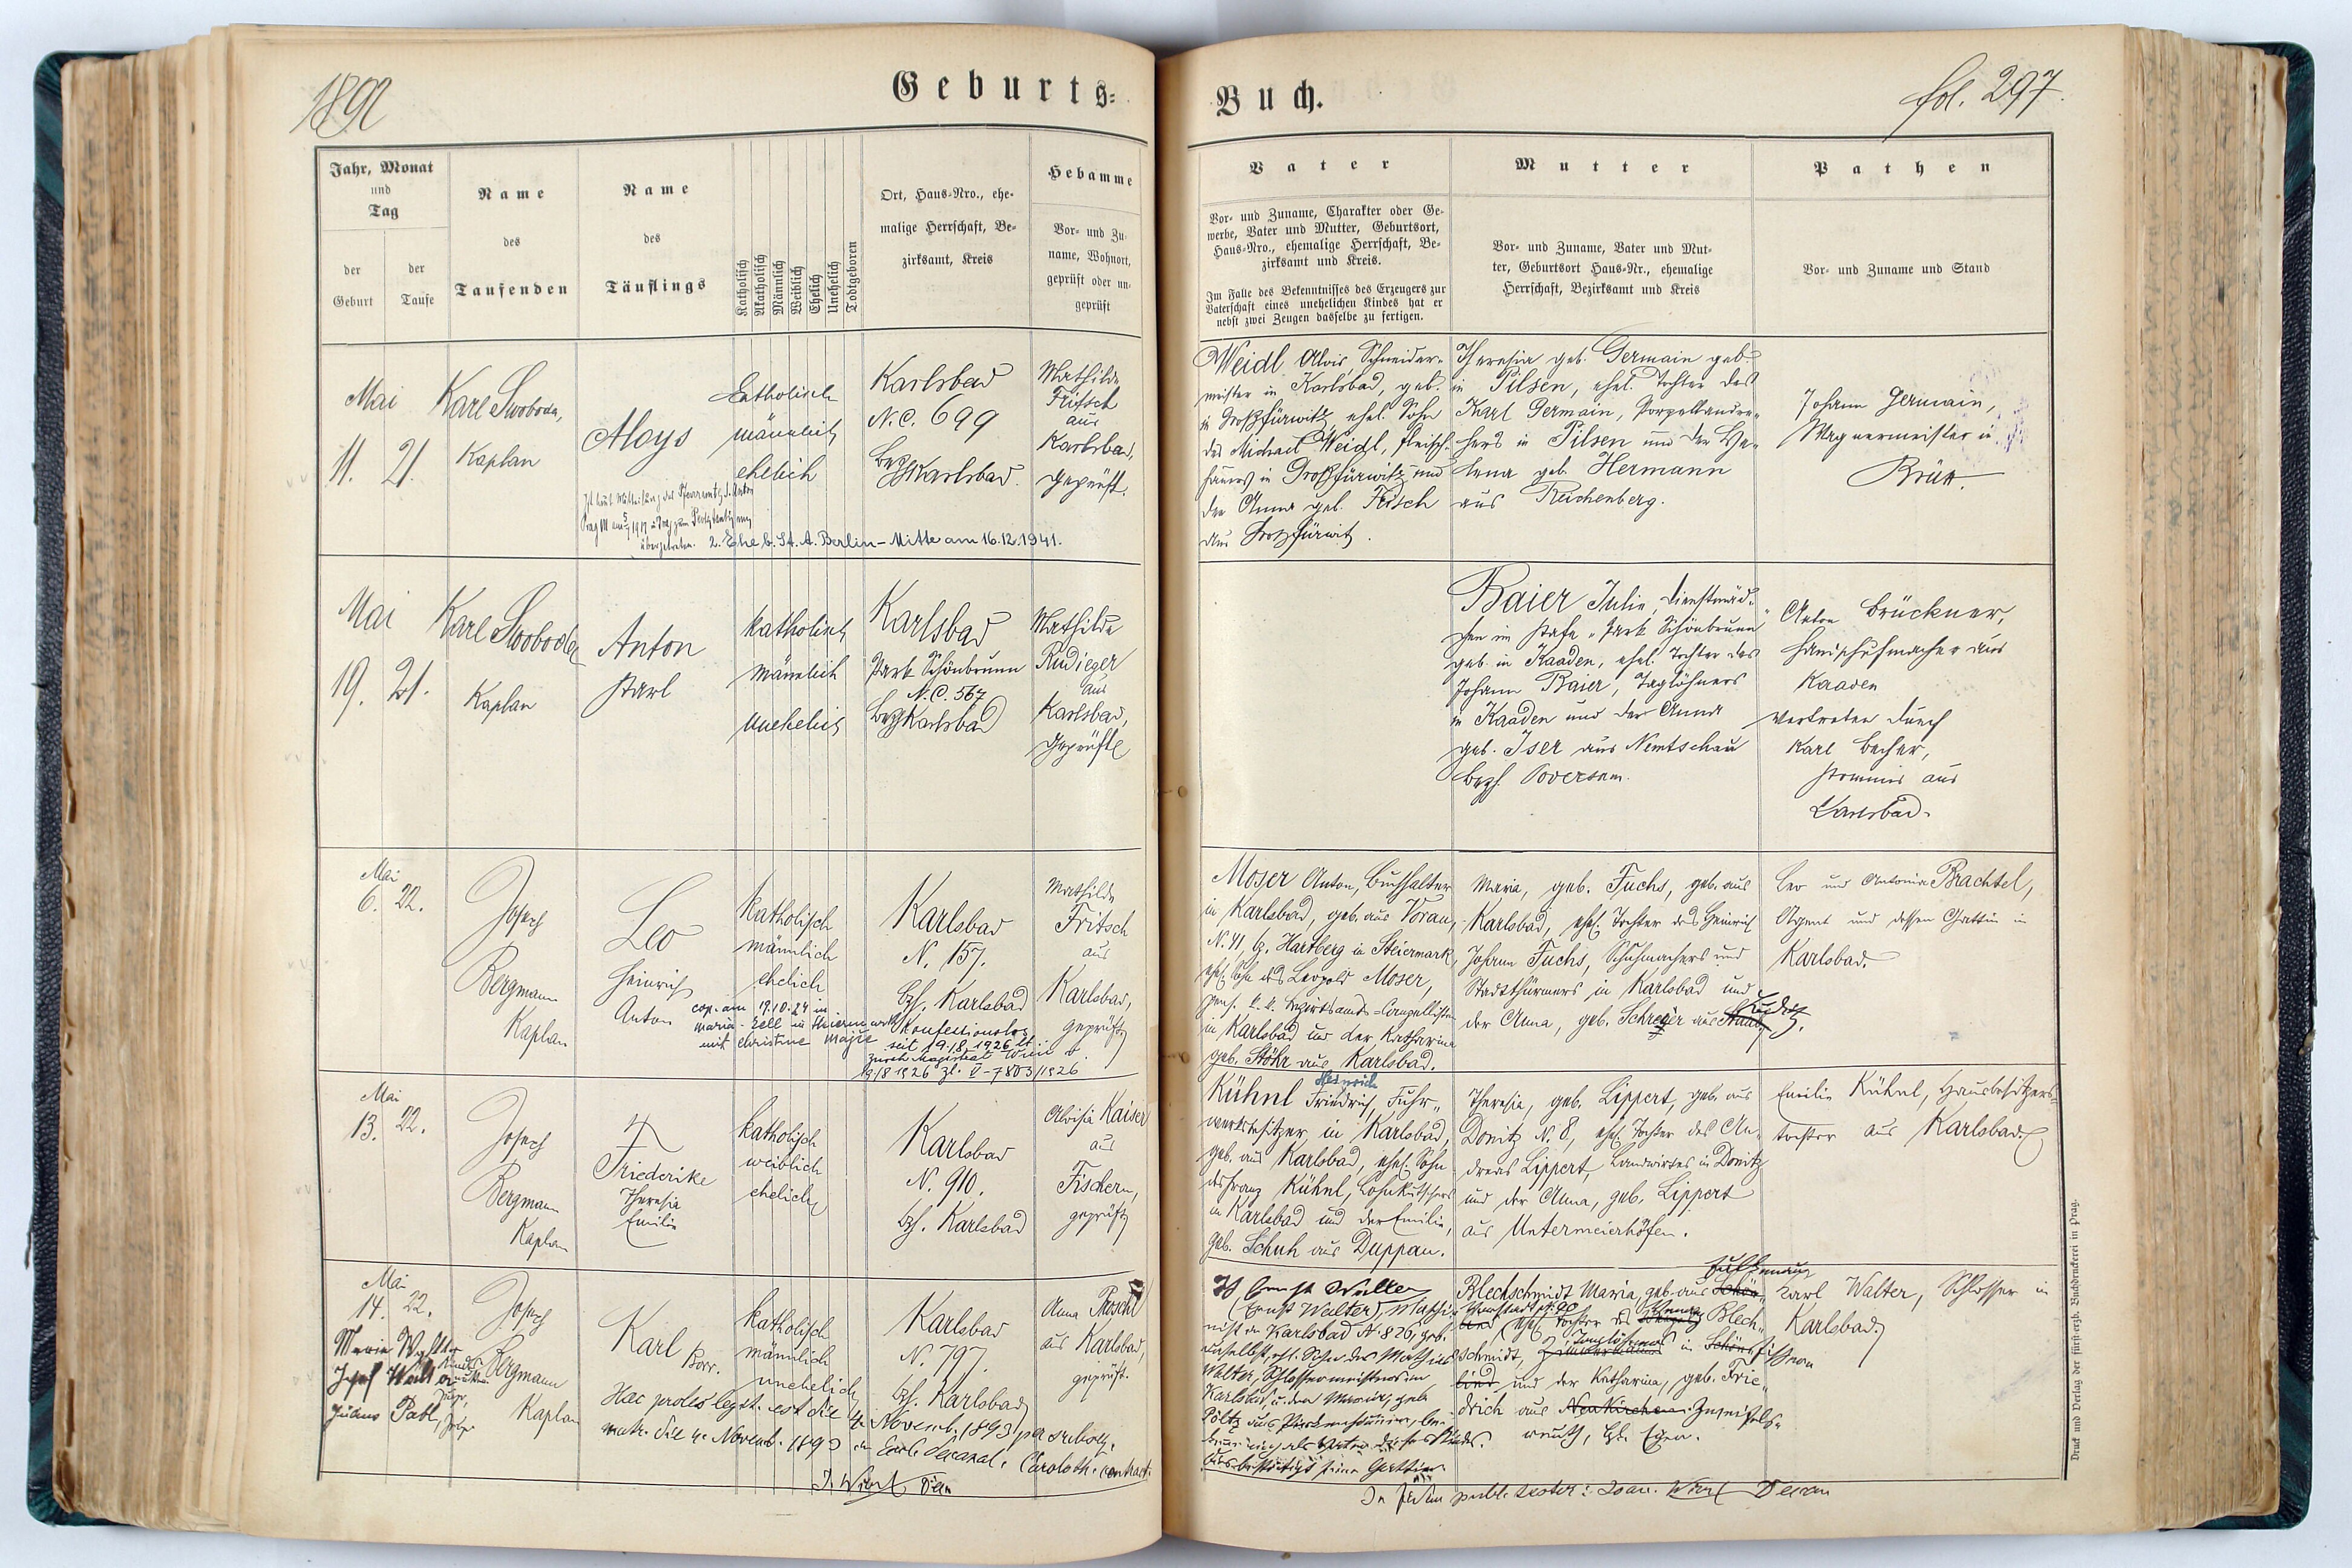 1892
Geburts-
Buch.
fol. 297.
Jahr, Monat
und
Tag
der
Geburt
der
Taufe
Name
des
Taufenden
Name
des
Täuflings
Katholisch
Akatholisch
Männlich
Weiblich
Ehelich
Unehelich
Todtgeboren
Ort, Haus-Nro., ehe-
malige Herrschaft, Be-
zirksamt, Kreis
Hebamme
Vor- und Zu-
name, Wohnort,
geprüft oder un-
geprüft
Vater
Vor- und Zuname, Charakter oder Ge-
werbe, Vater und Mutter, Geburtsort,
Haus-Nro., ehemalige Herrschaft, Be-
zirksamt und Kreis.
Im Falle des Bekenntnisses des Erzeugers zur
Vaterschaft eines unehelichen Kindes hat er
nebst zwei Zeugen dasselbe zu fertigen.
Mutter
Vor- und Zuname, Vater und Mut-
ter, Geburtsort Haus-Nr., ehemalige
Herrschaft, Bezirksamt und Kreis
Pathen
Vor- und Zuname und Stand
Mai
11. 21.
Karl Swoboda,
Kaplan
Aloys
katholisch
männlich
ehelich
Karlsbad
N.C. 699
Karlsbad.
Mathilde
Fritsch
aus
Karlsbad,
geprüft.
2. Ehe b. St. A. Berlin-Mitte am 16.12.1941.
Weidl Alois, Schneider-
meister in Karlsbad, geb.
in Großfürwitz, ehel. Sohn
des Michael Weidl, Fleisch-
hauers in Großfürwitz und
der Anna geb. Fritsch
aus Großfürwitz.
Theresia geb. Germain geb.
in Pilsen, ehel. Tochter des
Karl Germain, Porzellandre-
hers in Pilsen und der He-
lena geb. Hermann
aus Reichenberg.
Johann Germain,
Wagnermeister in
Brüx.
Mai
19. 21.
Karl Swoboda
Kaplan
Anton
Karl
katholisch
männlich
unehelich
Karlsbad
Park Schönbrunn
N.C. 567
Karlsbad
Mathilde
Rudieger
aus
Karlsbad,
geprüft
Baier Julie, Dienstmäd-
chen im Kafe "Park Schönbrunn"
geb. in Kaaden, ehel. Tochter des
Johann Baier, Taglöhners
in Kaaden und der Anna
geb. Iser aus Nemtschau
Bezh. Podersam.
Anton Brückner,
Handschuhmacher aus
Kaaden
vertreten durch
Karl Becher,
Kommis aus
Karlsbad.
Mai
6. 22.
Josef
Bergmann
Kaplan
Leo
Heinrich
Anton
katholisch
männlich
ehelich
cop. am 19.10.24 in
Maria-Zell in Steiermark
mit Christine
Karlsbad
N. 157.
Bzh. Karlsbad
Konfessionslos
seit 19./8. 1926 lt.
Magistrat Wien
19./8 1926 Zl. V-7803/1926
Mathilde
Fritsch
aus
Karlsbad,
geprüft
Moser Anton, Buchhalter
in Karlsbad, geb. aus Vorau,
N. 41, Bz. Hartberg in Steiermark,
ehel. Sohn des Leopold Moser,
pens. k. k. Bezirksamts-Canzellisten
in Karlsbad und der Katharina
geb. Stöhr aus Karlsbad.
Maria, geb. Fuchs, geb. aus
Karlsbad, ehel. Tochter des Heinrich
Johann Fuchs, Schuhmachers und
Stadtthürmers in Karlsbad und
der Anna, geb. Schreyer aus
Leo und Antonia Brachtel,
Agent und dessen Gattin in
Karlsbad.
Mai
13. 22.
Josef
Bergmann
Kaplan
Friederike
Theresia
Emilie
katholisch
weiblich
ehelich
Karlsbad
N. 910.
Bzh. Karlsbad
Aloisia Kaiser
aus
Fischern,
geprüft
Heinrich
Kühnl Friedrich, Fuhr-
werksbesitzer in Karlsbad,
geb. aus Karlsbad, ehel. Sohn
des Franz Kühnl, Lohnkutschers
in Karlsbad und der Emilie,
geb. Schuh aus Duppau.
Theresia, geb. Lippert, geb. aus
Donitz N. 8, ehel. Tochter des An-
dreas Lippert, Landwirtes in Donitz
und der Anna, geb. Lippert
aus Untermeierhöfen.
Emilie Kühnl, Hausbesitzers-
tochter aus Karlsbad.
Mai
14. 22.
Josef
Bergmann
Kaplan
Karl
Borr.
katholisch
männlich
unehelich
Karlsbad
N. 797.
Bzh. Karlsbad
Anna Proschl
aus Karlsbad,
geprüft.
Hac proles legit. est die 4. Novemb. 1893 per subseq.
matr. die 4. Novemb. 1893 in Eccl. decanal. Caroloth. contract.
(Ernst Walter), Maschi-
nist in Karlsbad N. 826, geb.
daselbst, ehl. Sohn des Mathias
Walter, Schlossermeisters in
Karlsbad, u. der Maria, geb.
Blechschmidt Maria, geb. aus
ehel. Tochter des Blech-
schmidt, in
und der Katharina, geb. Frie-
drich aus Neukirchen
Karl Walter, Schlosser in
Karlsbad.
Druck und Verlag der fürst-erzb. Buchdruckerei in Prag.